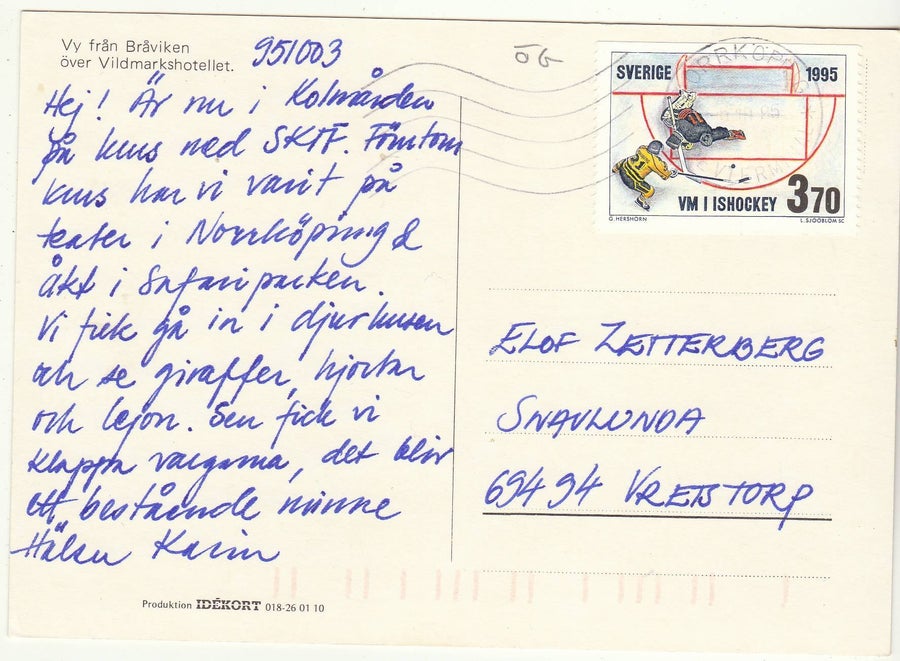 Vy från Bråviken
över Vildmarkshotellet.
951003
ÖG
Hej! Är nu i Kolmården
på kurs med SKTF. Förutom
kurs har vi varit på
teater i Norrköping &
åkt i Safariparken.
Vi fick gå in i djurhusen
och se giraffer, hjortar
och lejon. Sen fick vi
klappa vargarna, det blir
ett bestående minne
Hälsn Karin
SVERIGE 1995
VM I ISHOCKEY 3 70
G. HERSHORN L. SJÖÖBLOM SC
NORRKÖPING
ELOF ZETTERBERG
SNAVLUNDA
694 94 VRETSTORP
Produktion IDÉKORT 018-26 01 10